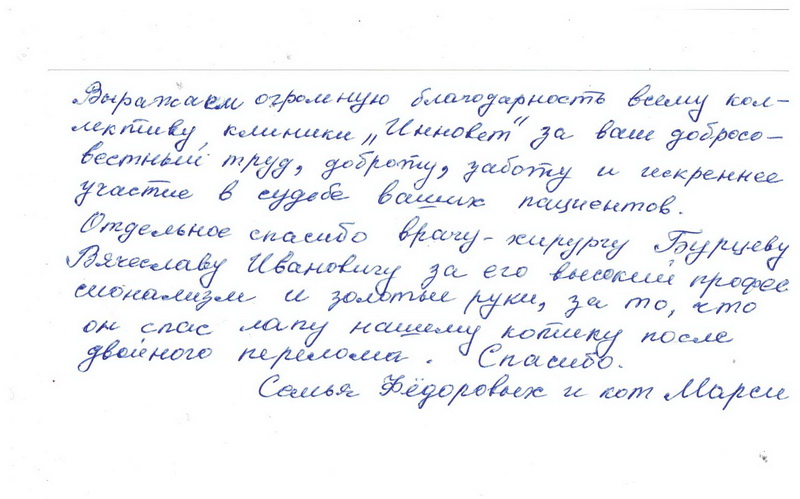 Выражаем огромную благодарность всему кол-
лективу клиники „Инновет" за ваш добросо-
вестный труд, доброту, заботу и искреннее
участие в судьбе ваших пациентов.
Отдельное спасибо врачу-хирургу Бурцеву
Вячеславу Ивановичу за его высокий профес
сионализм и золотые руки, за то, что
он спас лапу нашему котику после
двойного перелома. Спасибо.
Семья Фёдоровых и кот Марси